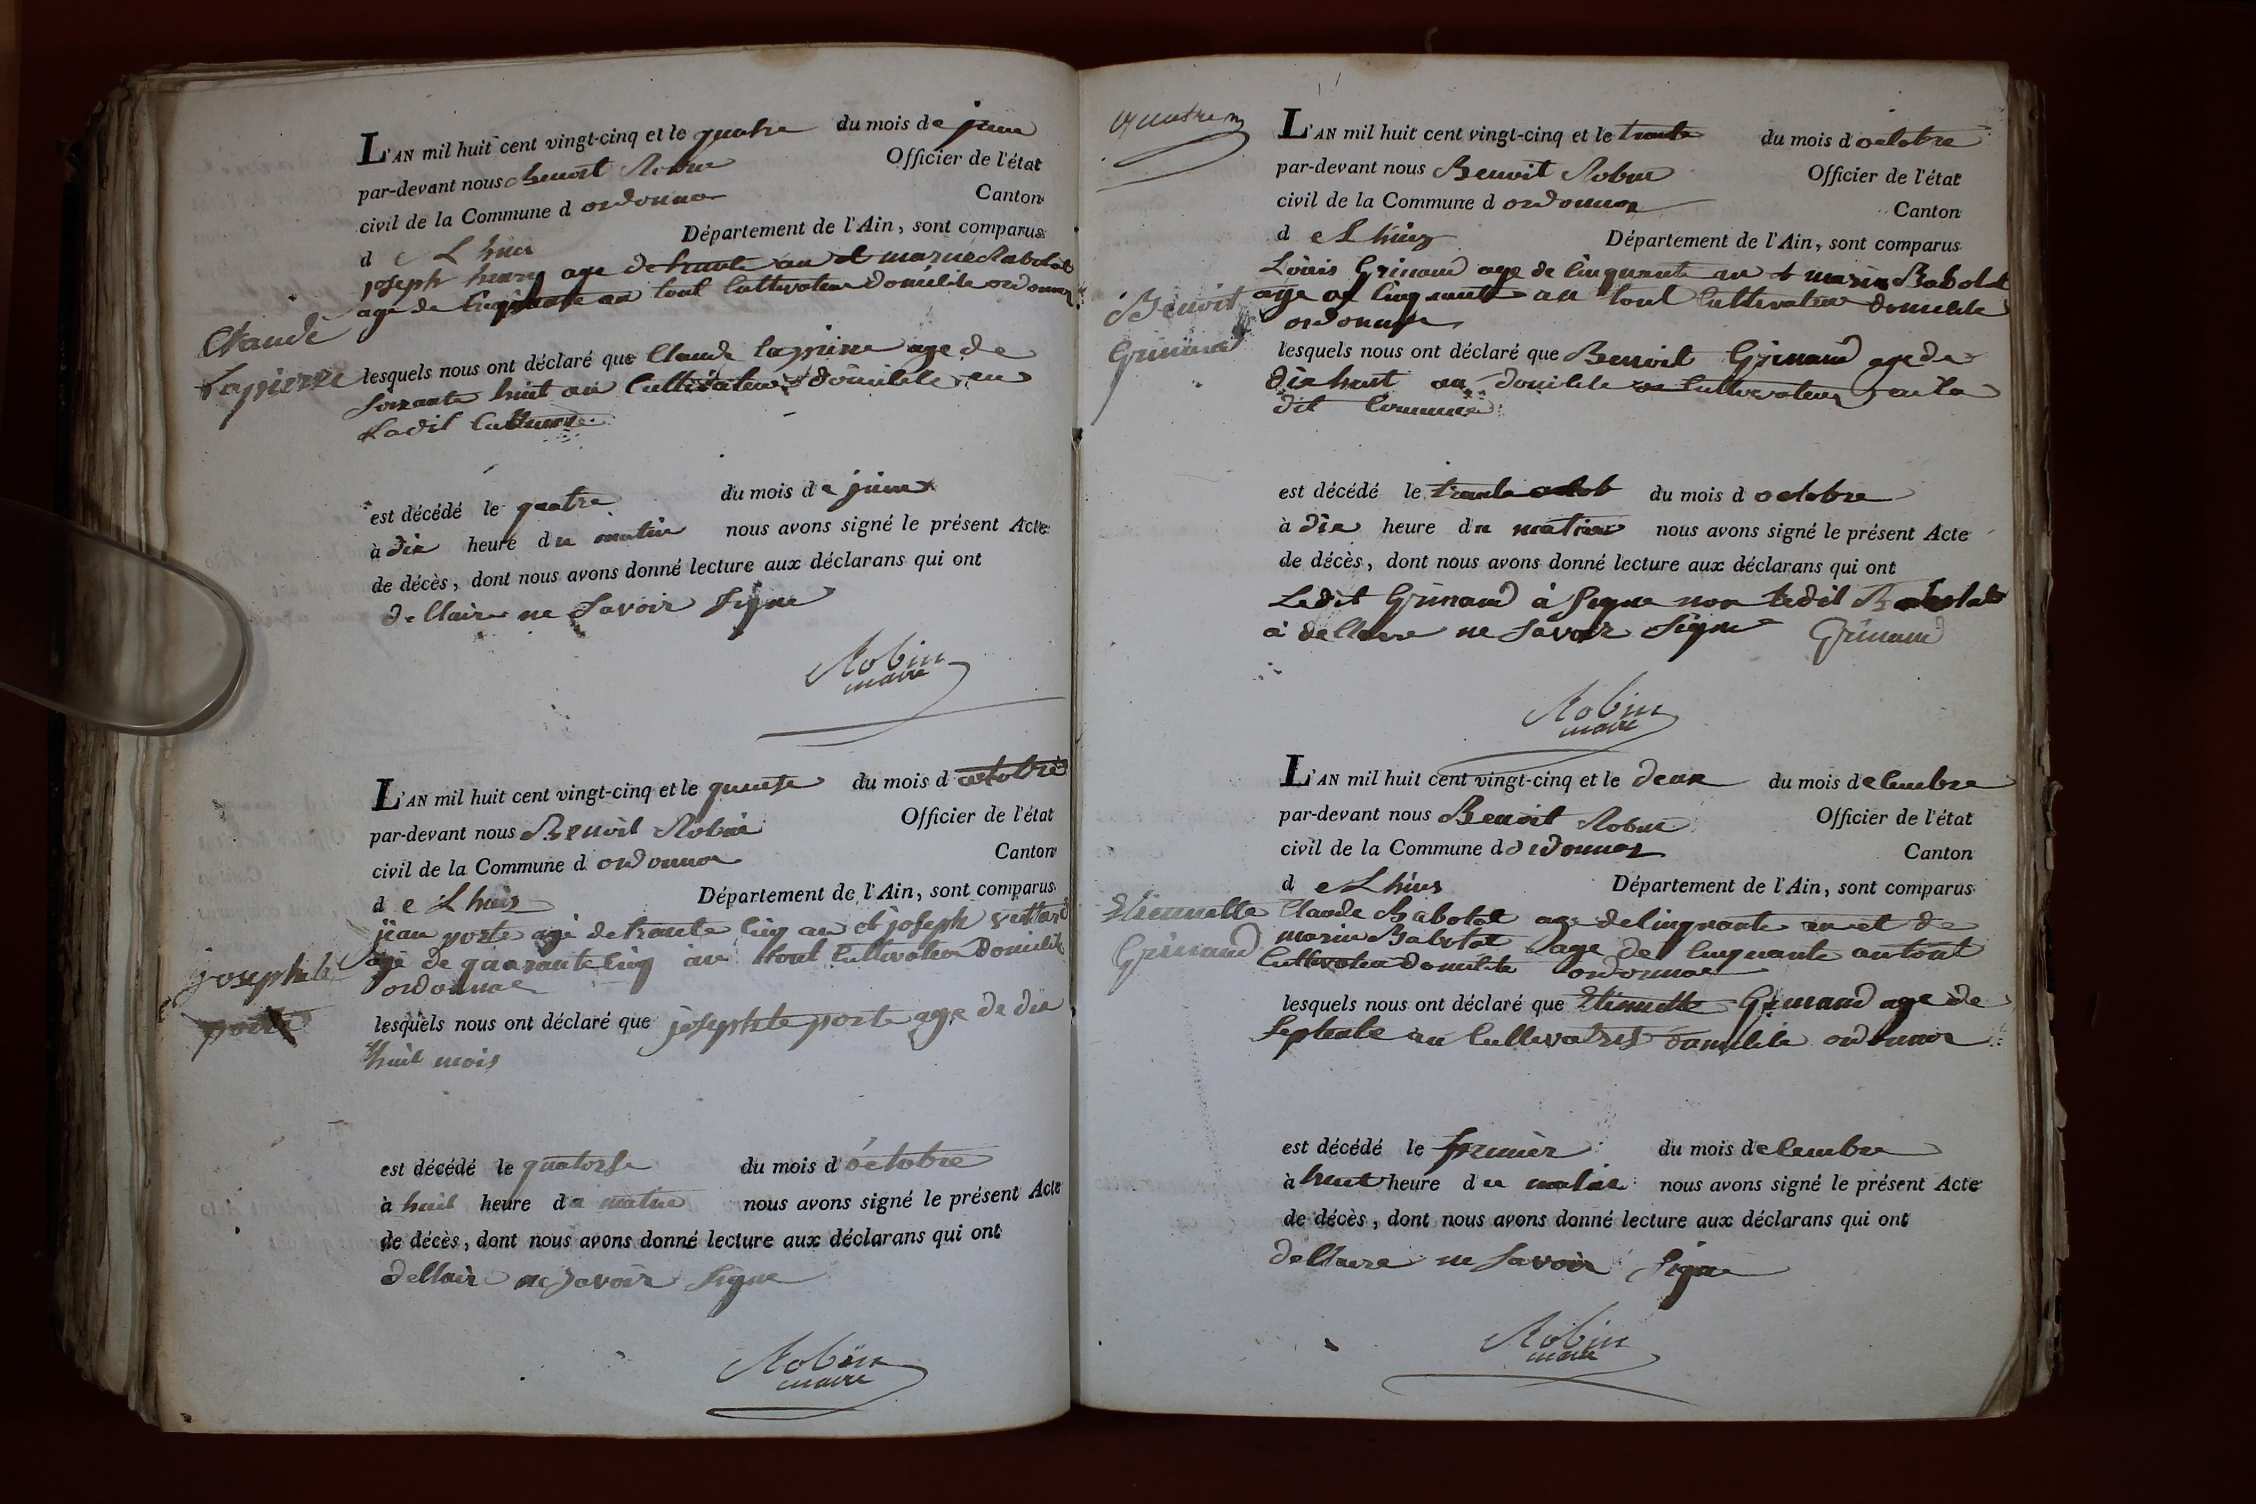 L'AN mil huit cent vingt-cinq et le quatre du mois de juin
par-devant nous Benoit Robin Officier de l'état
civil de la Commune d ordonnaz Canton
d e Lhuis Département de l'Ain, sont comparus
joseph age de trante an et marin Babolat
age de Cinquante an tout Cultivateur domicilile ordonnaz
Claude
Lapierre
lesquels nous ont déclaré que Claude lapierre age de
soixante huit an Cultivateur domicilile en
Ladit Commune
est décédé le quatre du mois de juin
à dix heure du matin nous avons signé le présent Acte
de décès, dont nous avons donné lecture aux déclarans qui ont
dellaire ne Savoir Signe
Robin
maire
L'AN mil huit cent vingt-cinq et le quinse du mois d octobre
par-devant nous Benoit Robin Officier de l'état
civil de la Commune d ordonnaz Canton
d e Lhuis Département de l'Ain, sont comparus
jean porte agé de trante Cinq an et joseph
agé de quarante Cinq an tout Cultivateur Domicilile
ordonnaz
josephte
porte
lesquels nous ont déclaré que josephte porte age de dix
huit mois
est décédé le quatorse du mois d'octobre
à huit heure du matin nous avons signé le présent Acte
de décès, dont nous avons donné lecture aux déclarans qui ont
dellair ne Savoir Signe
Robin
maire
L'AN mil huit cent vingt-cinq et le trante du mois d octobre
par-devant nous Benoit Robin Officier de l'état
civil de la Commune d ordonnaz Canton
d e Lhuis Département de l'Ain, sont comparus
Louis Grinand age de Cinquante an et marin Babolat
age de Cinquante an tout Cultivateur domicilile
ordonnaz
Benoit
Grinand
lesquels nous ont déclaré que Benoit Grinand age de
dix huit an domicilile Cultivateur en la
dit Commune
est décédé le trante octob du mois d octobre
à dix heure du matin nous avons signé le présent Acte
de décès, dont nous avons donné lecture aux déclarans qui ont
Ledit Grinand à Signe non ledit Babolat
a dellaire ne Savoir Signe Grinand
Robin
maire
L'AN mil huit cent vingt-cinq et le deux du mois de Cembre
par-devant nous Benoit Robin Officier de l'état
civil de la Commune d ordonnaz Canton
d e Lhuis Département de l'Ain, sont comparus
Claude Babolat age de Cinquante an et de
marin Babolat age de Cinquante an tout
Cultivateur domicilile ordonnaz
Etiennette
Grinand
lesquels nous ont déclaré que Etiennette Grinand age de
Septente an domicilile ordonnaz
est décédé le premier du mois de Cembre
à huit heure du matin nous avons signé le présent Acte
de décès, dont nous avons donné lecture aux déclarans qui ont
dellaire ne Savoir Signe
Robin
maire